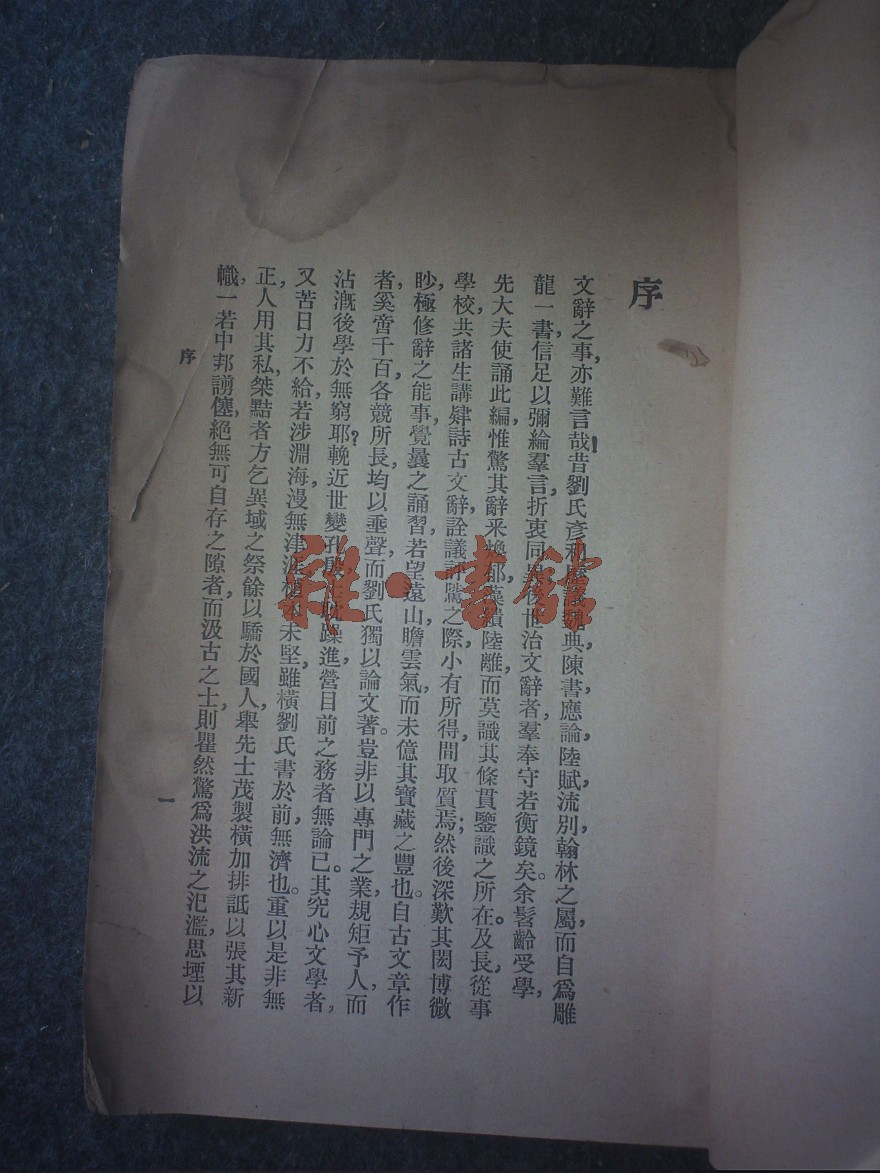 序
文辭之事，亦難言哉！昔劉氏彥和，歷議魏典陳書應論陸賦流別翰林之屬，而自爲雕
龍一書，信足以彌綸羣言，折衷同異，後世治文辭者，羣奉守若衡鏡矣。余髫齡受學，
先大夫使誦此編，惟驚其辭采煥郁，藻繢陸離，而莫識其條貫鑒識之所在。及長，從事
學校，共諸生講肄詩古文辭，詮議評騭之際，小有所得，間取質焉；然後深歎其閎博微
眇，極修辭之能事，覺曩之誦習，若望遠山，瞻雲氣，而未億其寶藏之豐也。自古文章作
者，奚啻千百，各競所長，均以垂聲，而劉氏獨以論文著。豈非以專門之業，規矩予人，而
沾漑後學於無窮耶？輓近世變孔殷，士耽躁進，營目前之務者無論已。其究心文學者，
又苦日力不給，若涉淵海，漫無津涯，植本未堅，雖橫劉氏書於前，無濟也。重以是非無
正，人用其私，桀黠者方乞異域之祭餘，以驕於國人，舉先士茂製，橫加排詆，以張其新
幟，一若中邦謭僿，絕無可自存之隙者，而汲古之士，則瞿然驚爲洪流之汜濫，思堙以
序
一
雜·書館